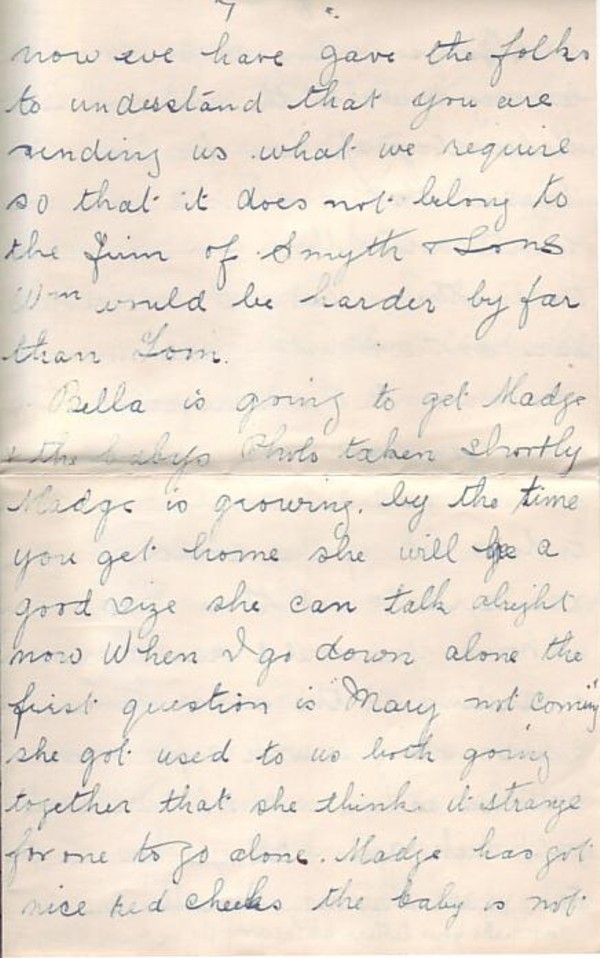 7
now we have gave the folks
to understand that you are
sending us what we require
so that it does not belong to
the firm of Smyth & Sons
Wm would be harder by far
than Tom.
Bella is going to get Madge
& the babys Photo taken shortly
Madge is growing. by the time
you get home she will be a
good size she can talk alright
now When I go down alone the
first question is "Mary not coming"
she got used to us both going
together that she think it strange
for one to go alone. Madge has got
nice red cheeks the baby is not